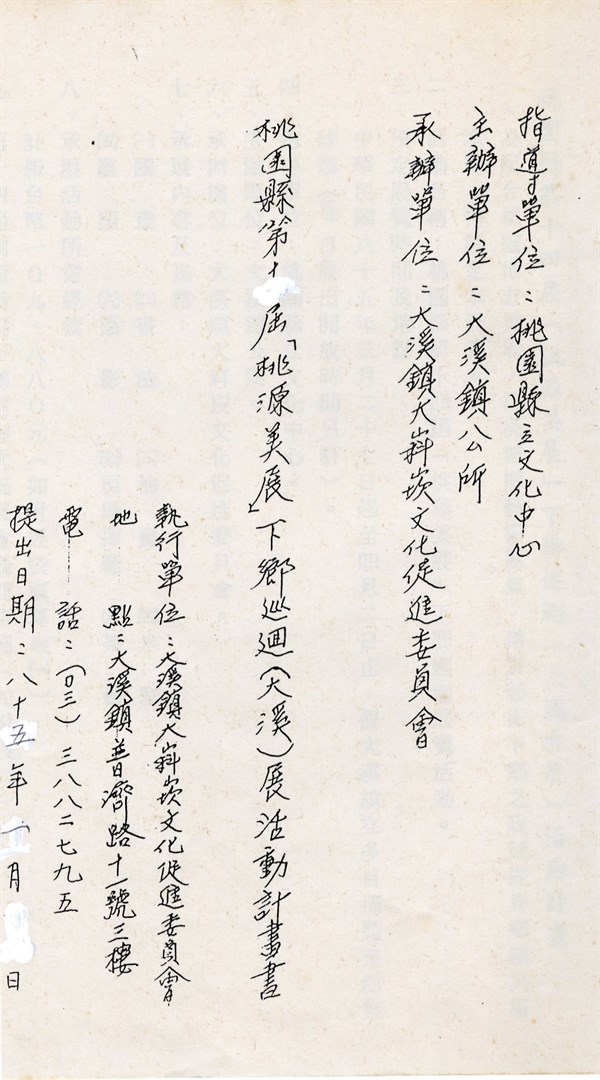 指導單位：桃園縣立文化中心
主辦單位：大溪鎮公所
承辦單位：大溪鎮大嵙崁文化促進委員會
桃園縣第十 屆「桃源美展」下鄉巡迴（大溪）展活動計畫書
執行單位：大溪鎮大嵙崁文化促進委員會
地 點：大溪鎮普濟路十一號三樓
電 話：（〇三）三八八二七九五
提出日期：八十五年 月 日